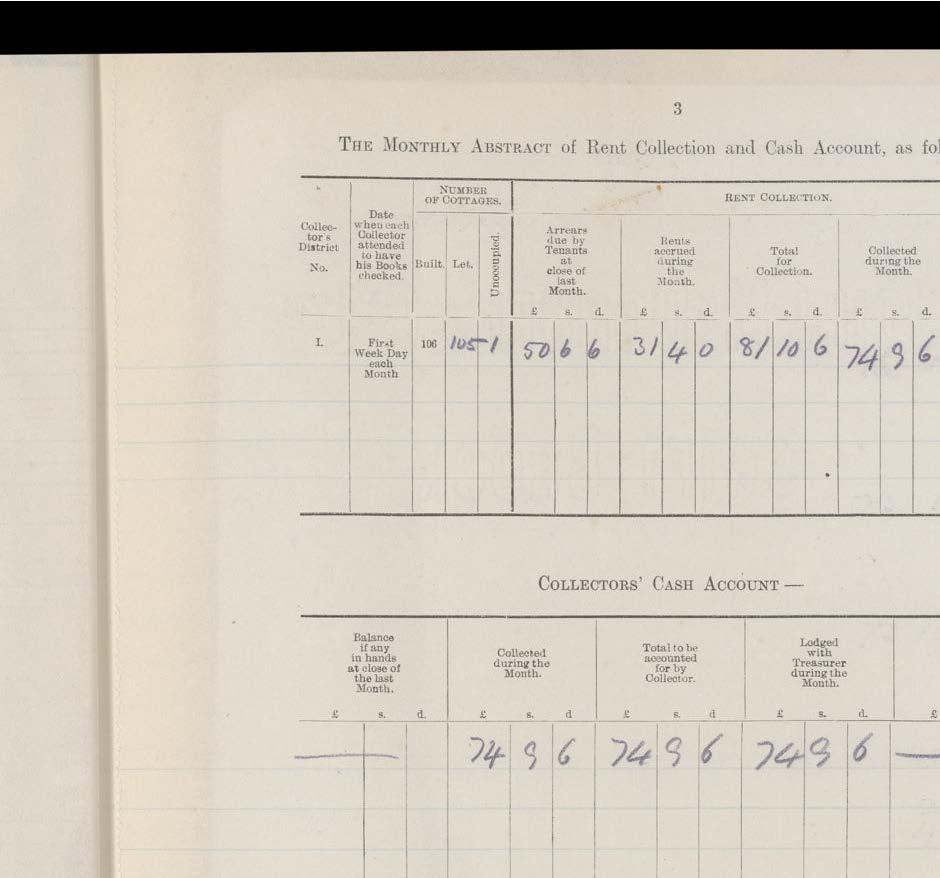 3
THE MONTHLY ABSTRACT of Rent Collection and Cash Account, as fol
NUMBER
OF COTTAGES.
RENT COLLECTION.
Collec-
tor's
District
No.
Date
when each
Collector
attended
to have
his Books
checked.
Built.
Let.
Unoccupied.
Arrears
due by
Tenants
at
close of
last
Month.
Rents
accrued
during
the
Month.
Total
for
Collection.
Collected
during the
Month.
£ s. d. £ s. d. £ s. d. £ s. d.
I.
First
Week Day
each
Month
106 105 1 50 6 6 31 4 0 81 10 6 74 9 6
COLLECTORS' CASH ACCOUNT —
Balance
if any
in hands
at close of
the last
Month.
Collected
during the
Month.
Total to be
accounted
for by
Collector.
Lodged
with
Treasurer
during the
Month.
£ s. d. £ s. d £ s. d £ s. d. £
74 9 6 74 9 6 74 9 6